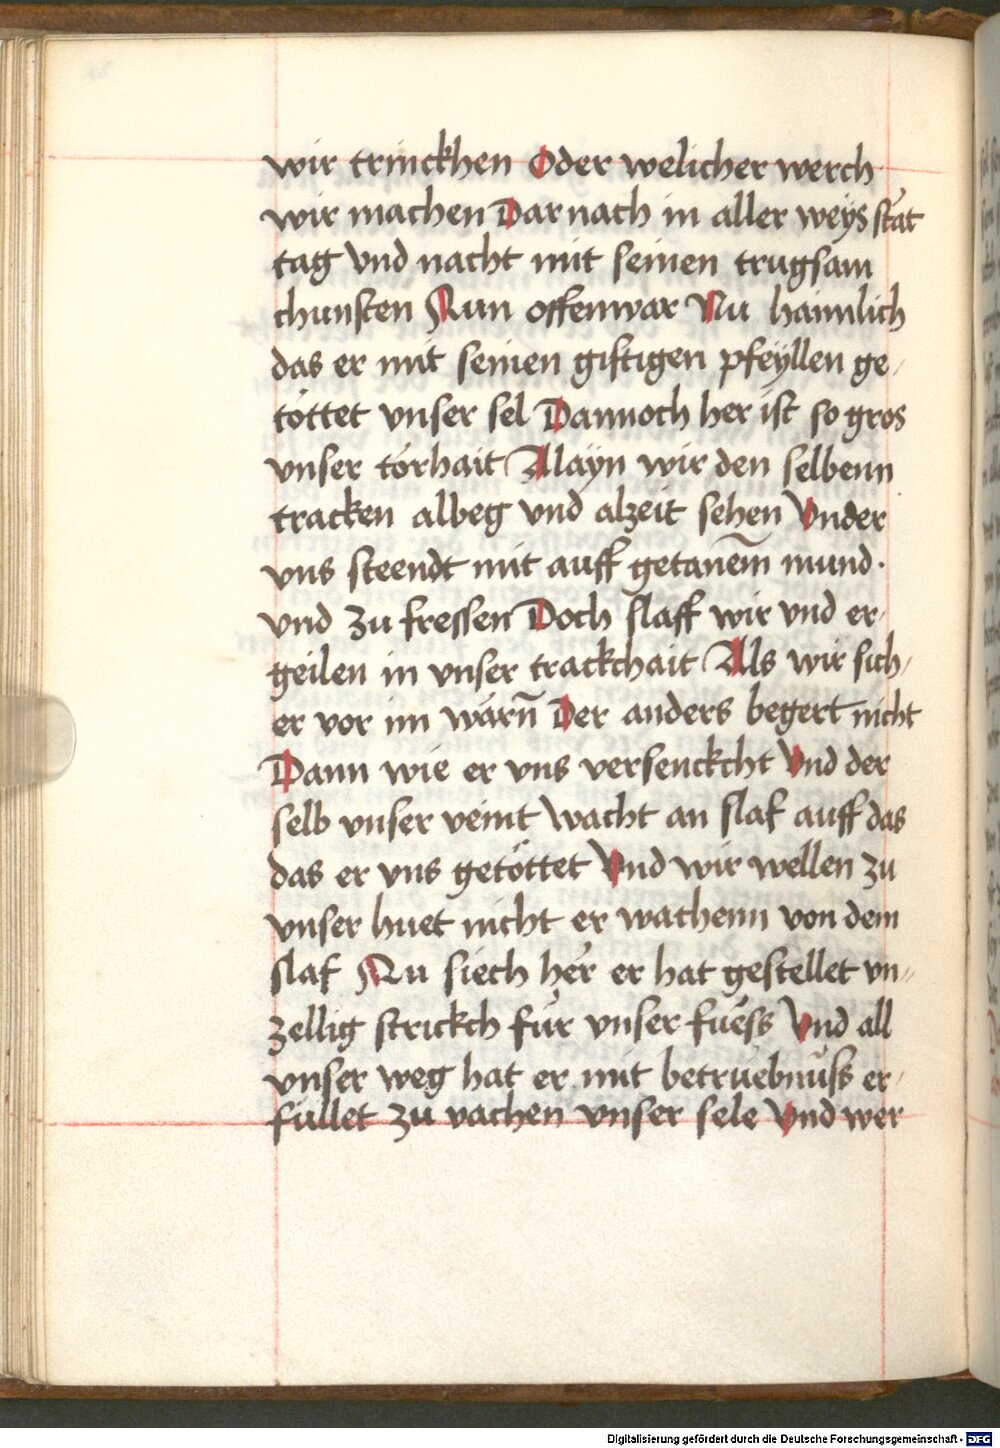 wir trinckhen Oder welicher werch
wir machen Dar nach in aller weÿs stat
tag vnd nacht mit seinen trugsam
chunsten Nun offenwar Nu haimlich
das er mit seinen giftigen pfeÿllen ge-
töttet vnser sel Dannoch her ist so gros
vnser torhait Alaÿn wir den selbenn
tracken albeg vnd alzeit sehen Vnder
vns steendt mit auff getanem̄ mund.
vnd zu fressen Doch slaff wir vnd er-
geilen in vnser trackchait Als wir sich-
er vor im wärn̄ Der anders begert nicht
Dann wie er vns versenckcht Vnd der
selb vnser veint wacht an slaf auff das
das er vns getöttet Vnd wir wellen zu
vnser huet nicht er wachenn von dem
slaf Nu siech her er hat gestellet vn-
zellig strickch für vnser fuess Vnd all
vnser weg hat er mit betruebnüss er-
füllet zu vachen vnser sele Vnd wer
Digitalisierung gefördert durch die Deutsche Forschungsgemeinschaft - DFG